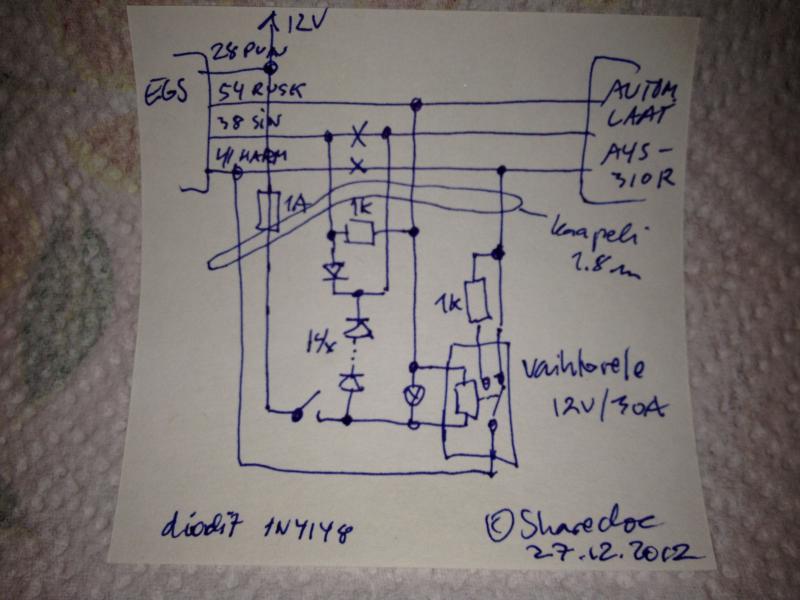 12V
28 PUN
EGS
54 RUSK
38 SIN
41 HARM
AUTOM
LAAT
A45-
310R
1A
1K
kaapeli
1.8m
1k
14x
vaihtorele
12V/30A
diodit 1N4148
© Sharedoc
27.12.2012